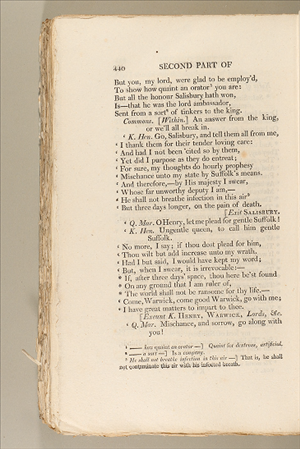 440 SECOND PART OF
But you, my lord, were glad to be employ'd,
To show how quaint an orator³ you are:
But all the honour Salisbury hath won,
Is—that he was the lord ambassador,
Sent from a sort⁴ of tinkers to the king.
Commons. [Within.] An answer from the king,
or we'll all break in.
‘ K. Hen. Go, Salisbury, and tell them all from me,
‘ I thank them for their tender loving care:
‘ And had I not been 'cited so by them,
‘ Yet did I purpose as they do entreat;
‘ For sure, my thoughts do hourly prophesy
‘ Mischance unto my state by Suffolk's means.
‘ And therefore,—by His majesty I swear,
‘ Whose far unworthy deputy I am,—
‘ He shall not breathe infection in this air⁵
‘ But three days longer, on the pain of death.
[Exit SALISBURY.
‘ Q. Mar. O Henry, let me plead for gentle Suffolk!
‘ K. Hen. Ungentle queen, to call him gentle
Suffolk.
‘ No more, I say; if thou dost plead for him,
‘ Thou wilt but add increase unto my wrath.
‘ Had I but said, I would have kept my word;
‘ But, when I swear, it is irrevocable:—
* If, after three days' space, thou here be'st found
* On any ground that I am ruler of,
* The world shall not be ransome for thy life.—
‘ Come, Warwick, come good Warwick, go with me;
‘ I have great matters to impart to thee.
[Exeunt K. HENRY, WARWICK, Lords, &c.
‘ Q. Mar. Mischance, and sorrow, go along with
you!
³ —— how quaint an orator —] Quaint for dextrous, artificial.
⁴ —— a sort —] Is a company.
⁵ He shall not breathe infection in this air —] That is, he shall
not contaminate this air with his infected breath.